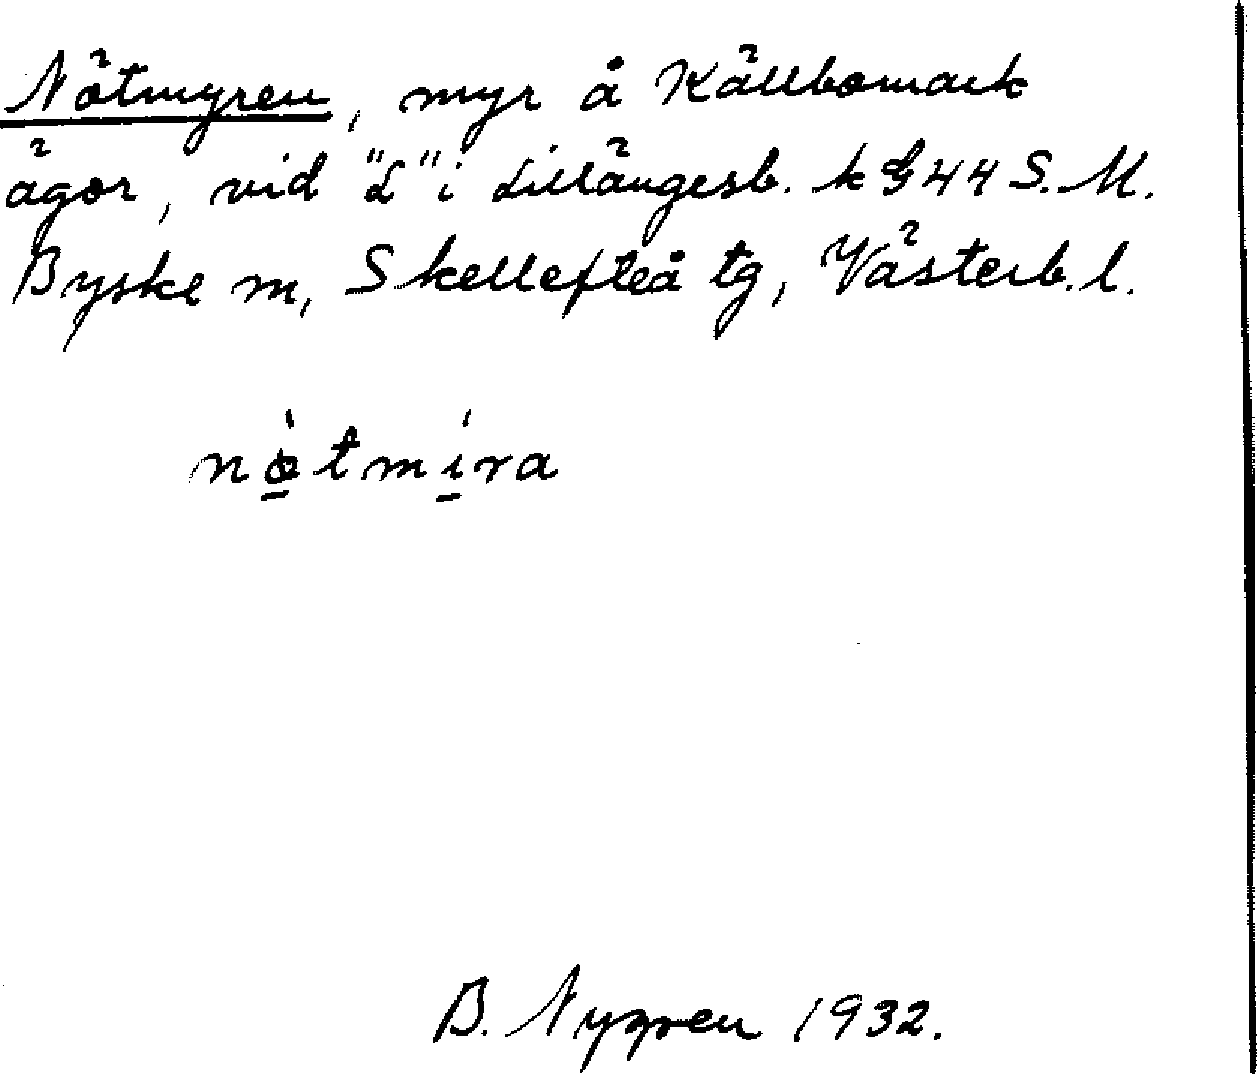 Nötmyren, myr å Källbomark
ägor, vid "L" i Lillängesb. k G 44 S.M.
Byske sn, Skellefteå tg, Västerb. l.
nø̀tmíra
B. Nygren 1932.